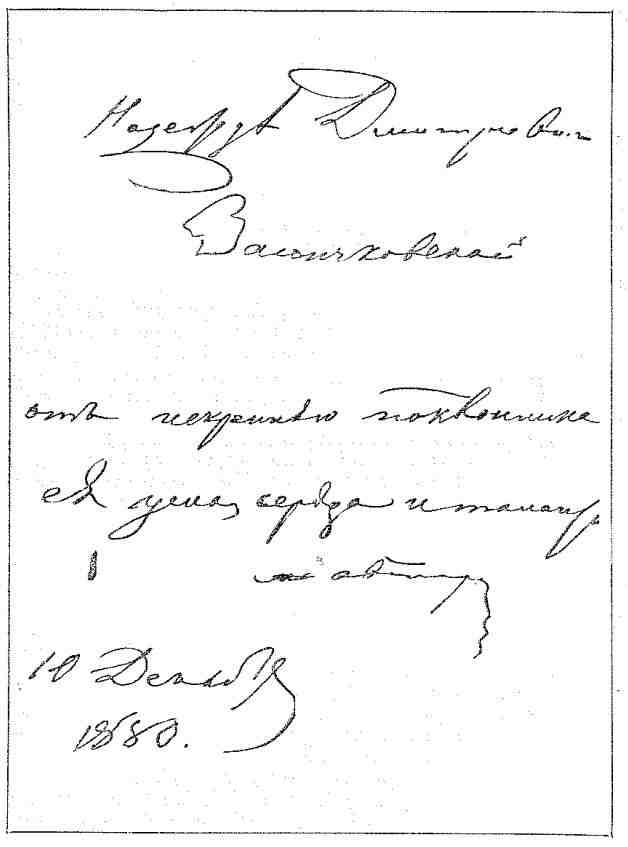 Надеждѣ Дмитріевнѣ
Заіончковской
отъ искренняго поклонника
ея ума, сердца и таланта
авторъ
10 Декабр
1880.